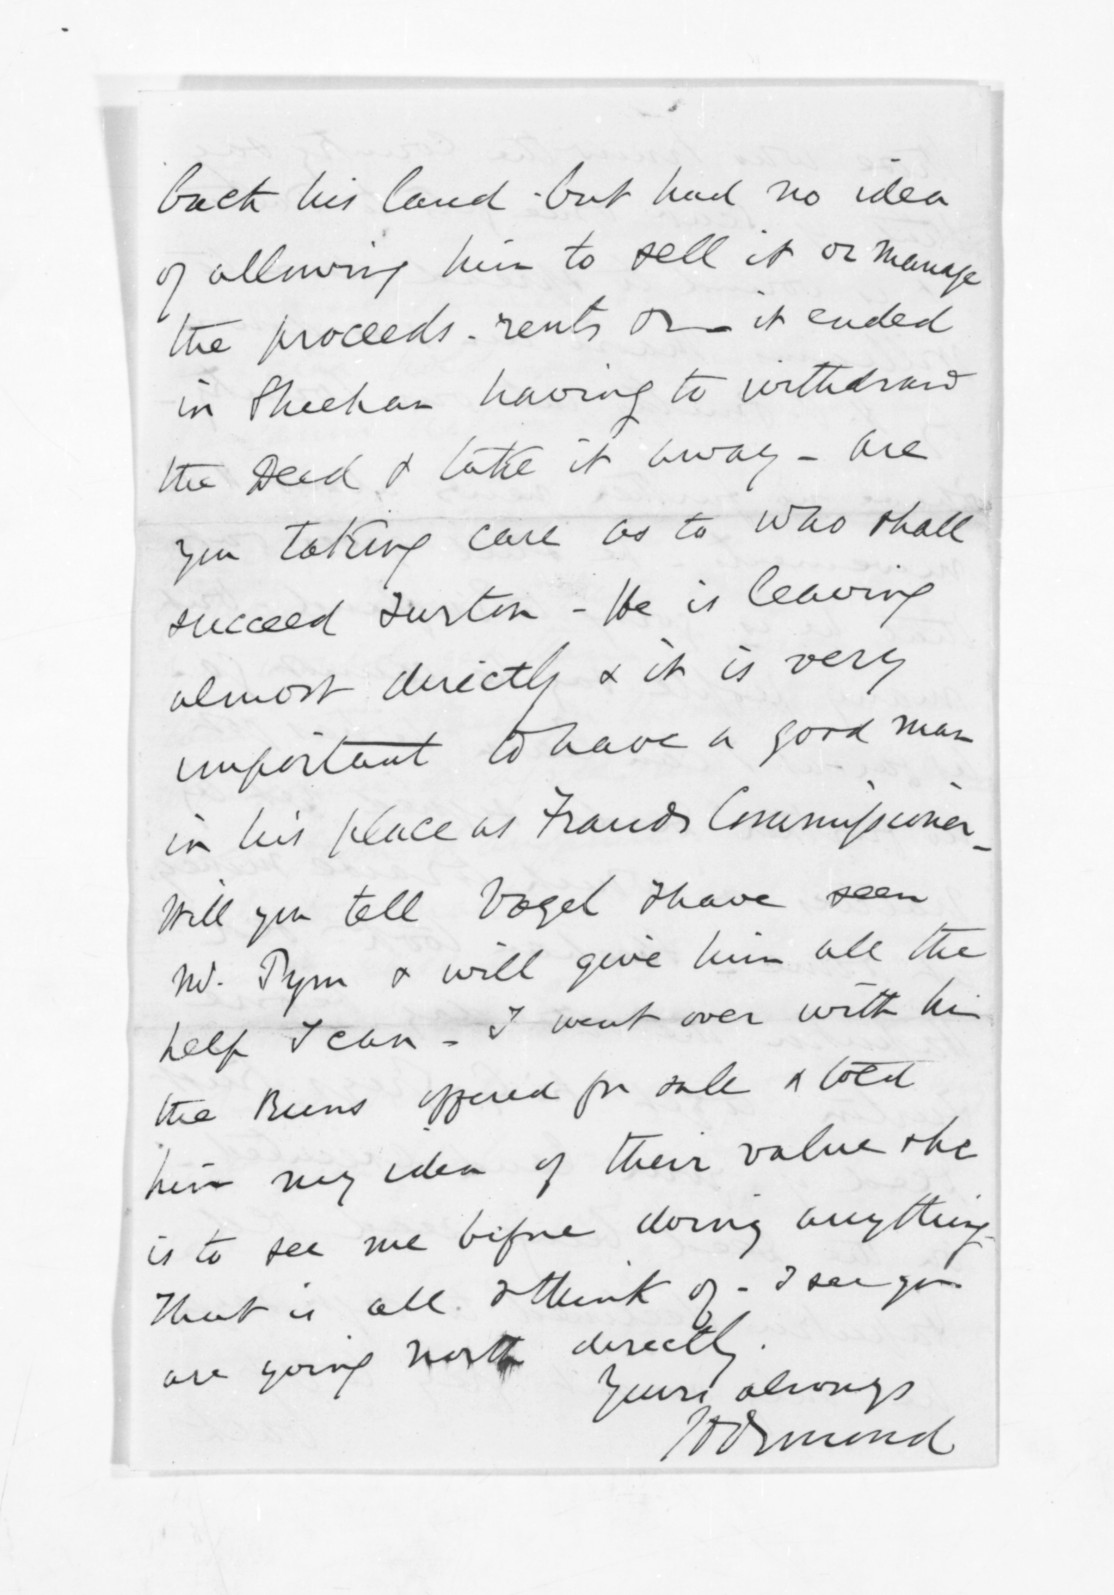 back his land - but had no idea
of allowing him to sell it or manage
the proceeds - rents or - it ended
in Sheehan having to withdraw
the Deed & take it away - are
you taking care as to who shall
succeed Turton - He is leaving
almost directly & it is very
important to have a good man
in his place as Frauds Commissioner -
Will you tell Vogel I have seen
Mr. Pym & will give him all the
help I can - I went over with him
the Runs offered for sale & told
him my idea of their value & he
is to see me before doing anything -
that is all I think of - I see you
are going North directly.
Yours always
Ormond